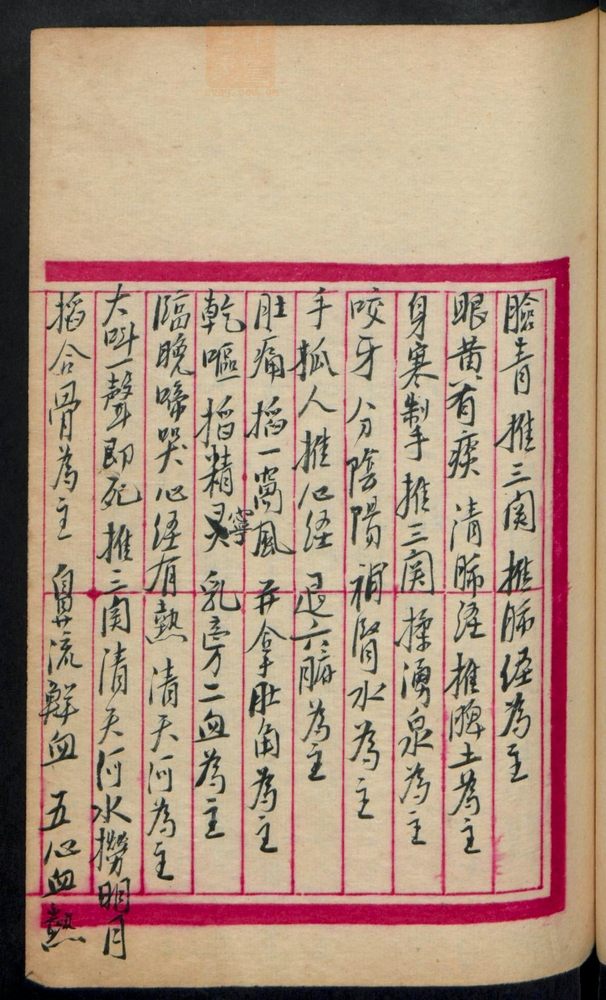 臉青推三関推肺経為主
眼黄有痰清肺経推脾土為主
身寒制手推三関揉湧泉為主
咬牙分陰陽補腎水為主
手抓人推心経退六腑為主
肚痛掐一窩風并拿肚角為主
乾嘔掐精灵寧乳旁二血為主
臨晚啼哭心経有熱清天河為主
大叫一聲即死推三関清天河水撈明月
掐合骨為主鼻流鮮血五心血熱